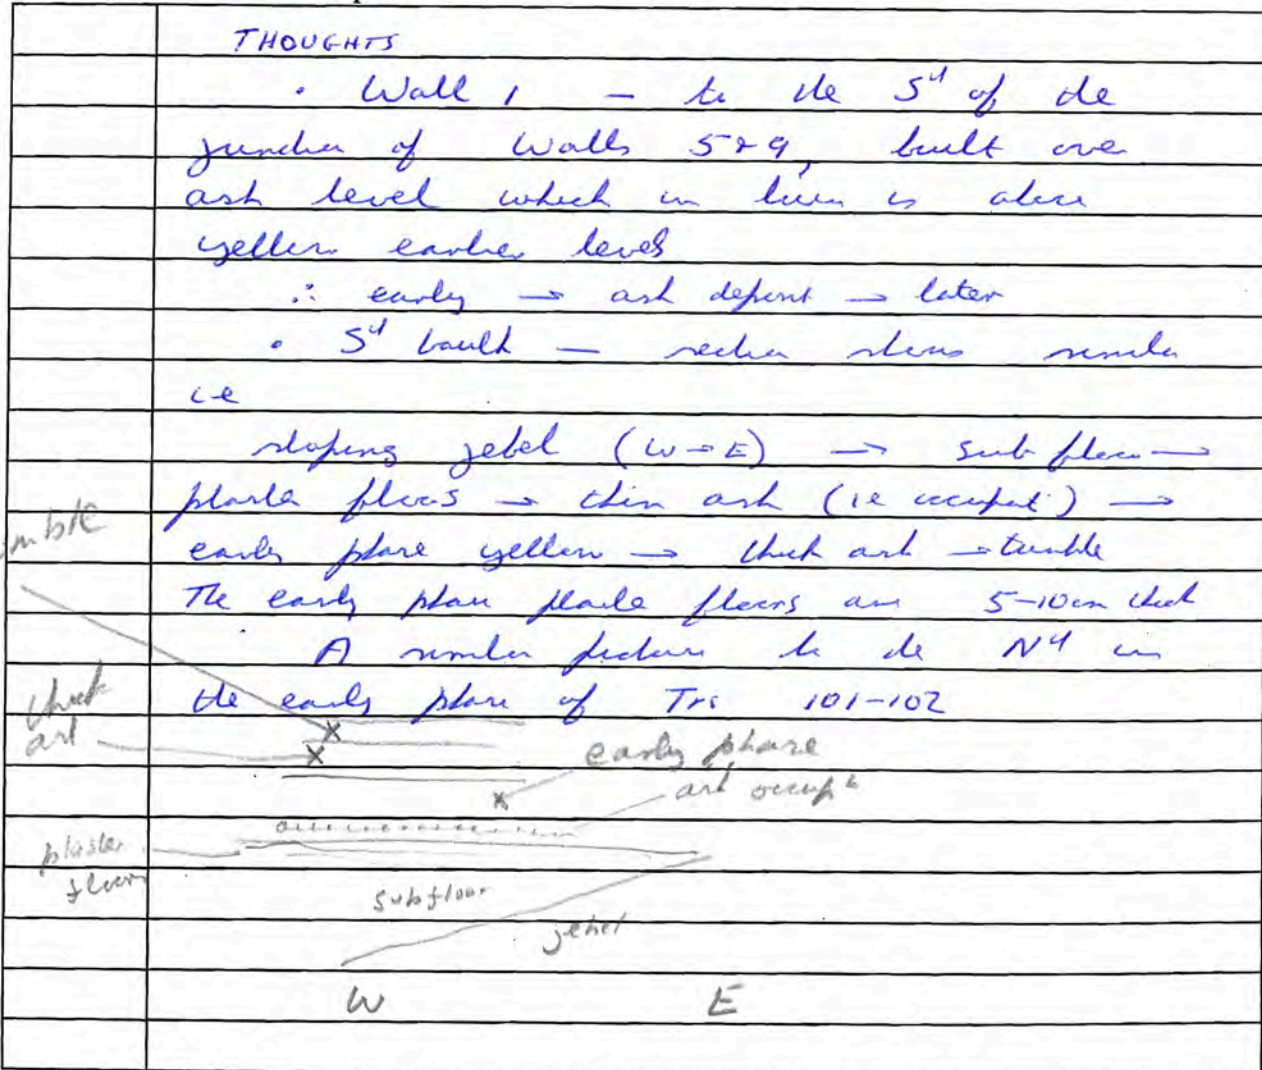 THOUGHTS
• Wall 1 – to the Sᵈ of the
junction of Walls 5 & 9, built over
ash level which in turn is above
yellow earlier levels
∴ early → ash deposit → later
• Sᵈ baulk – section shows similar
ie
sloping jebel (W→E) → sub floor →
plaster floors → thin ash (ie occupatⁿ) →
early phase yellow → thick ash → tumble
The early phase plaster floors are 5-10cm thick
A similar picture to the Nᵈ in
the early phase of Trs 101-102
thick
ash
early phase
ash occupᵗ
plaster
floors
subfloor
jebel
W E